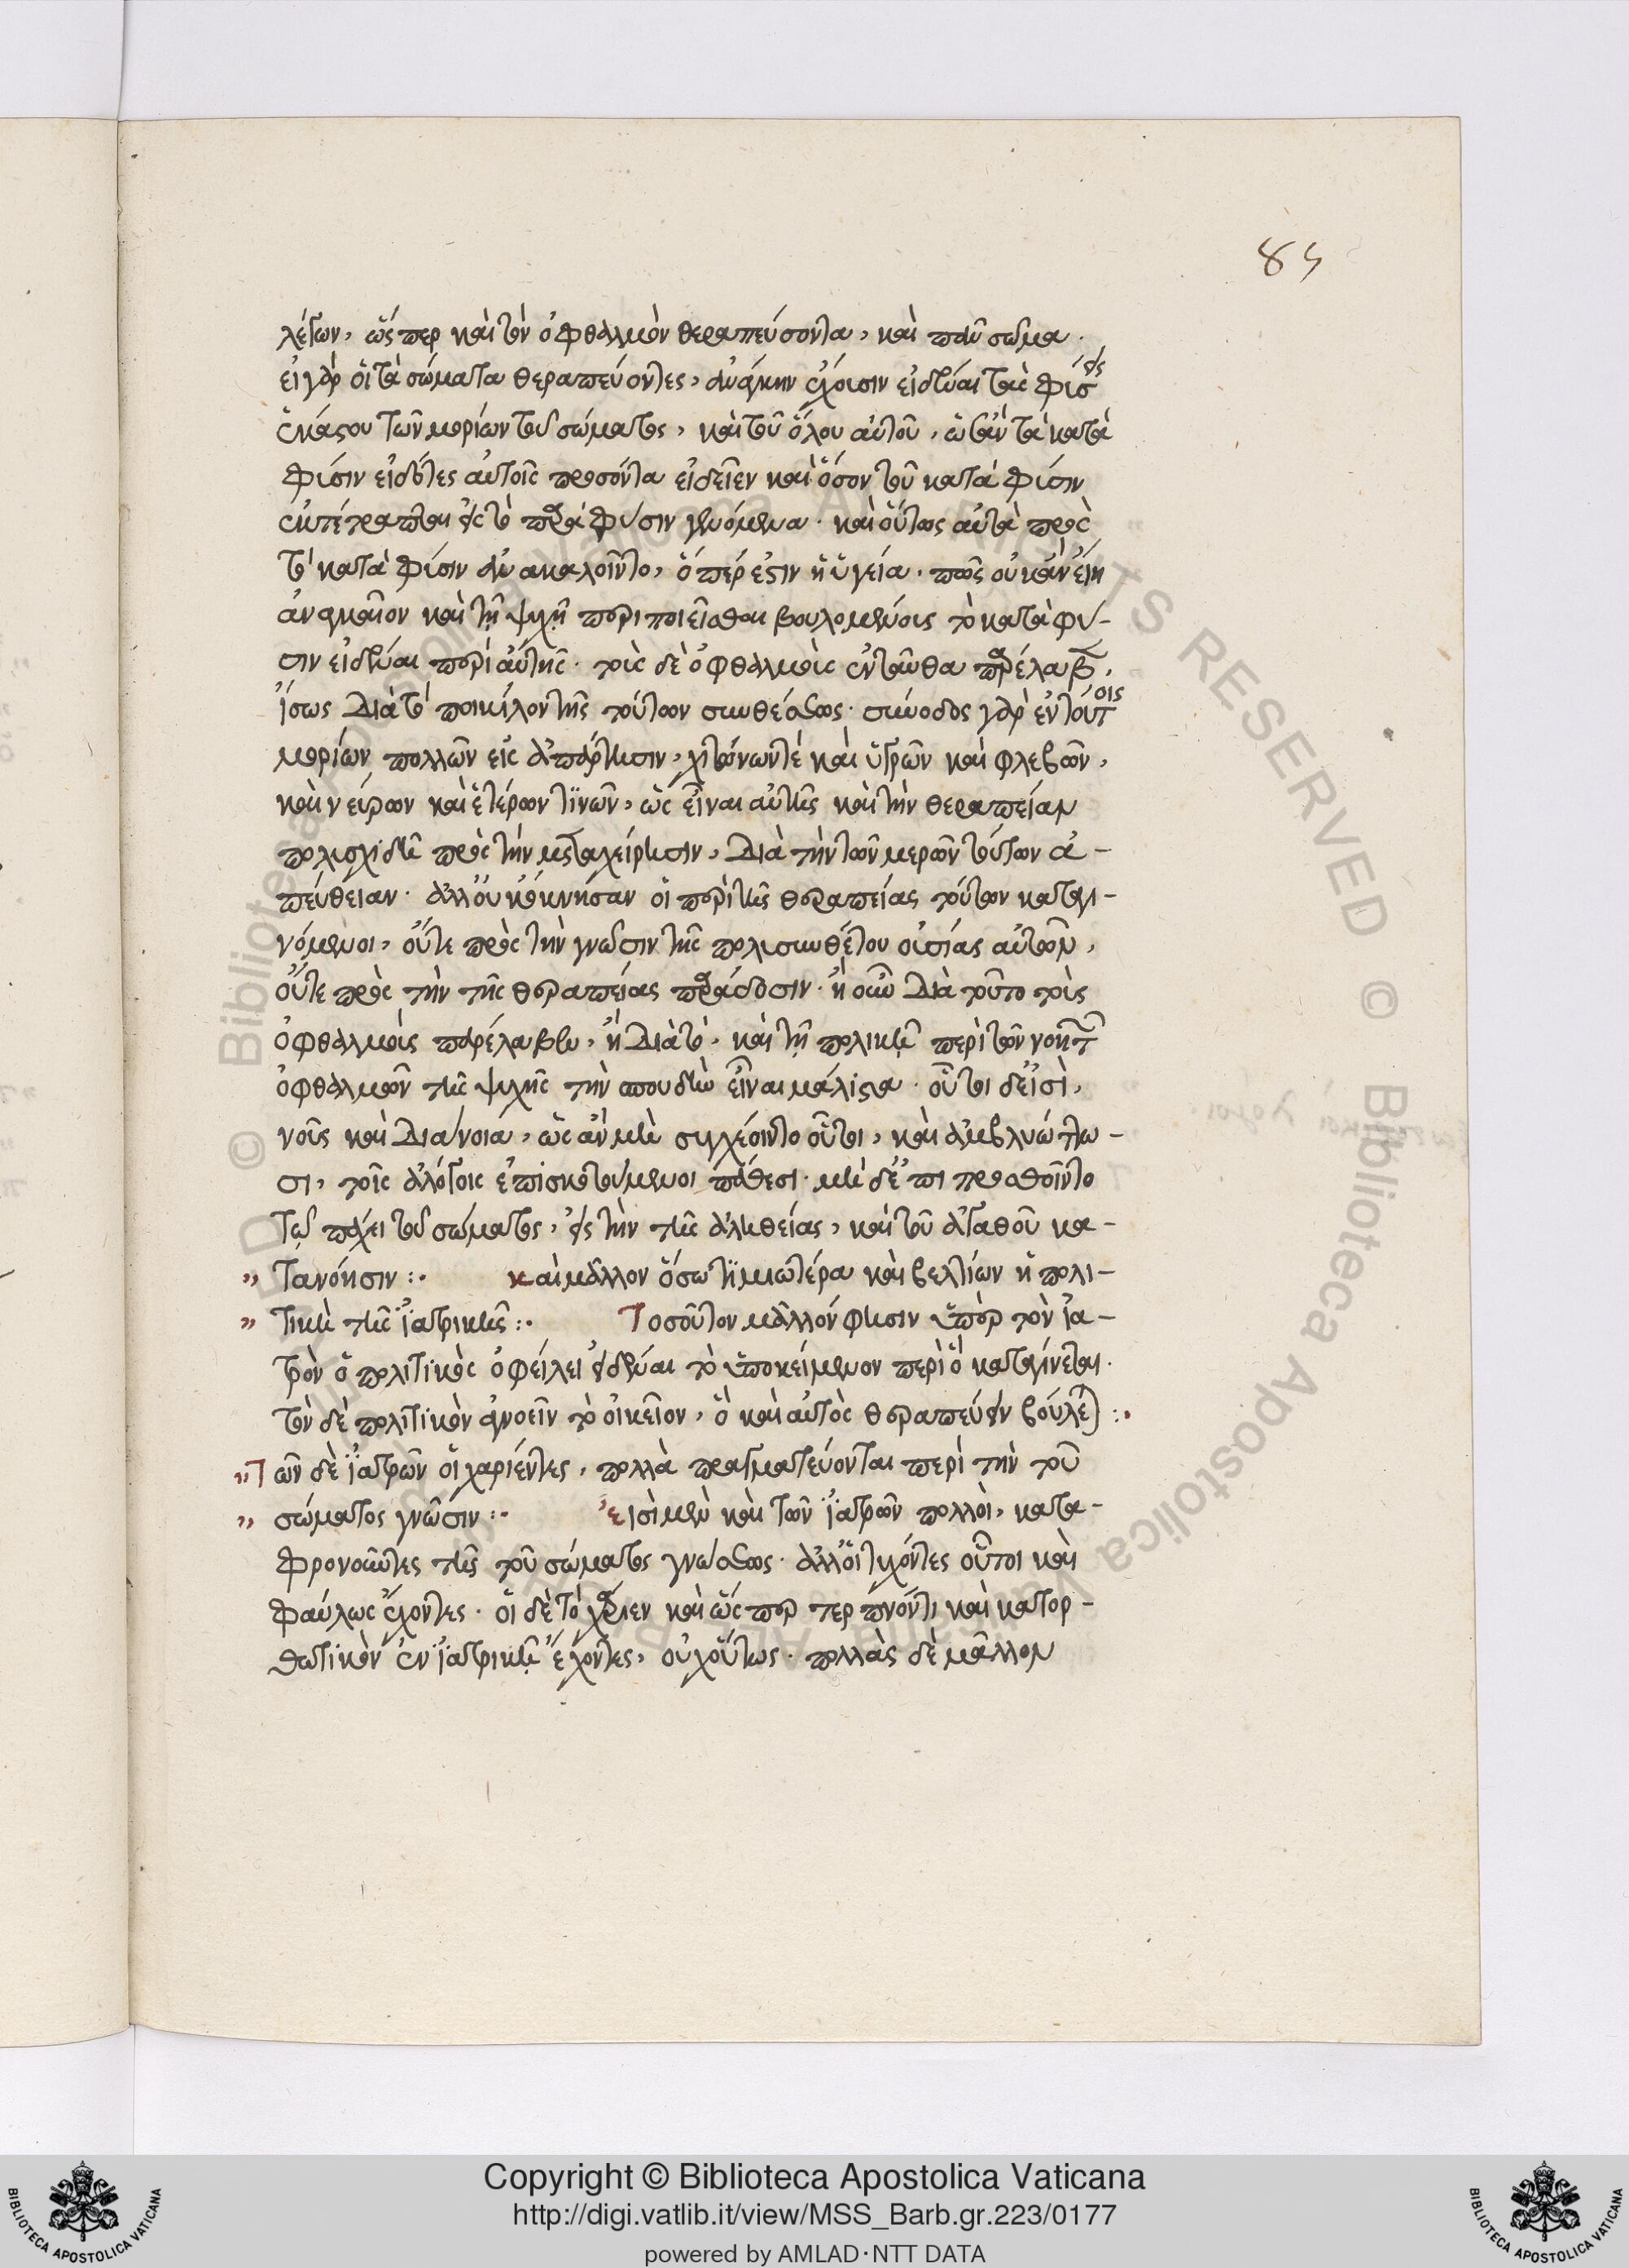 85
λέγων, ὥσπερ καὶ τὸν ὀφθαλμὸν θεραπεύσοντα, καὶ πᾶν σῶμα.
εἰ γὰρ οἱ τὰ σώματα θεραπεύοντες, ἀνάγκην ἔχουσιν εἰδέναι τὰς φύσεις
ἑκάστου τῶν μορίων τοῦ σώματος, καὶ τοῦ ὅλου αὐτοῦ, ὡς ἂν τὰ κατὰ
φύσιν εἰδότες αὐτοῖς προσόντα εἰδεῖεν καὶ ὅσον τοῦ κατὰ φύσιν
ἐκτέτραπται εἰς τὸ παρὰ φύσιν γενόμενα. καὶ οὕτως αὐτὰ πρὸς
τὸ κατὰ φύσιν ἀνακαλοῖντο, ὅπερ ἐστὶν ἡ ὑγεία. πῶς οὐκ ἂν εἴη
ἀναγκαῖον καὶ τῇ ψυχῇ περιποιεῖσθαι βουλομένοις τὸ κατὰ φύ-
σιν εἰδέναι περὶ αὐτῆς. τοὺς δὲ ὀφθαλμοὺς ἐνταῦθα παρέλαβεν,
ἴσως διὰ τὸ ποικίλον τῆς τούτων συνθέσεως. σύνοδος γὰρ ἐν τούτοις
μορίων πολλῶν εἰς ἀπάρτισιν, χιτώνων τὲ καὶ ὑγρῶν καὶ φλεβῶν,
καὶ νεύρων καὶ ἑτέρων τινῶν, ὡς εἶναι αὐτῆς καὶ τὴν θεραπείαν
πολυσχιδῆ πρὸς τὴν μεταχείρισιν, διὰ τὴν τῶν μερῶν τούτων ἀ-
πεύθειαν. ἀλλ' οὐκ ὤκνησαν οἱ περὶ τῆς θεραπείας τούτων καταγι-
νόμενοι, οὔτε πρὸς τὴν γνῶσιν τῆς πολυσυνθέτου οὐσίας αὐτῶν,
οὔτε πρὸς τὴν τῆς θεραπείας παράδοσιν. ἢ οὖν διὰ τοῦτο τοὺς
ὀφθαλμοὺς παρέλαβεν, ἢ διὰ τὸ, καὶ τῇ πολιτικῇ περὶ τῶν νοητῶν
ὀφθαλμῶν τῆς ψυχῆς τὴν σπουδὴν εἶναι μάλιστα. οὗτοι δ' εἰσὶ,
νοῦς καὶ διάνοια, ὡς ἂν μὴ συγχέοιντο οὗτοι, καὶ ἀμβλυώττω-
σι, τοῖς ἀλόγοις ἐπισκοτούμενοι πάθεσι. μὴ δέ τι προσθοῖντο
τῷ πάχει τοῦ σώματος, εἰς τὴν τῆς ἀληθείας, καὶ τοῦ ἀγαθοῦ κα-
" τανόησιν:· καὶ μᾶλλον ὅσω τιμιωτέρα καὶ βελτίων ἡ πολι-
" τικὴ τῆς ἰατρικῆς:· Τοσοῦτον μᾶλλόν φησιν ὑπὲρ τὸν ἰα-
τρὸν ὁ πολιτικὸς ὀφείλει εἰδέναι τὸ ὑποκείμενον περὶ ὃ καταγίνεται.
τὸν δὲ πολιτικὸν ἀγνοεῖν τὸ οἰκεῖον, ὃ καὶ αὐτὸς θεραπεύειν βούλεται:·
" Τῶν δὲ ἰατρῶν οἱ χαρίεντες, πολλὰ πραγματεύονται περὶ τὴν τοῦ
" σώματος γνῶσιν:· εἰσὶ μὲν καὶ τῶν ἰατρῶν πολλοὶ, κατα-
φρονοῦντες τῆς τοῦ σώματος γνώσεως. ἀλλ' οἱ τυχόντες οὗτοι καὶ
φαύλως ἔχοντες. οἱ δὲ τὸ χάριεν καὶ ὥσπερ τερπνόν τι καὶ κατορ-
θωτικὸν ἐν ἰατρικῇ ἔχοντες, οὐχ οὕτως. πολλὰς δὲ μᾶλλον
Copyright © Biblioteca Apostolica Vaticana
http://digi.vatlib.it/view/MSS_Barb.gr.223/0177
powered by AMLAD·NTT DATA